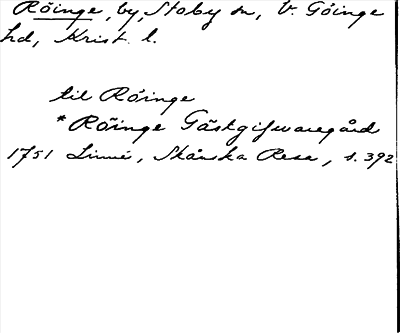 Röinge, by, Stoby sn, V. Göinge
hd, Krist. l.
til Röinge
* Röinge Gästgifwaregård
1751 Linné, Skånska Resa, s. 392